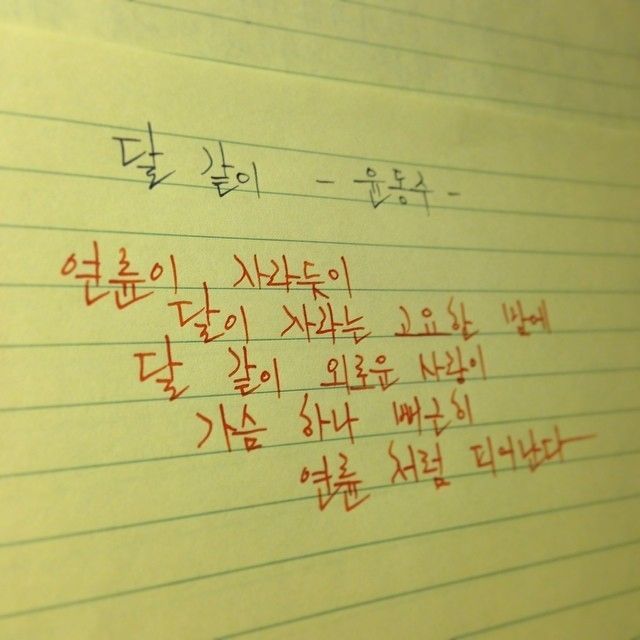 달 같이 - 윤동주 -
연륜이 자라듯이
달이 자라는 고요한 밤에
달 같이 외로운 사랑이
가슴 하나 뻐근히
연륜 처럼 피어난다